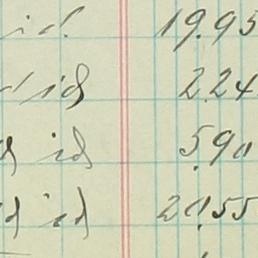 id. 19.95
id 2.24
id 5.90
id 20.55